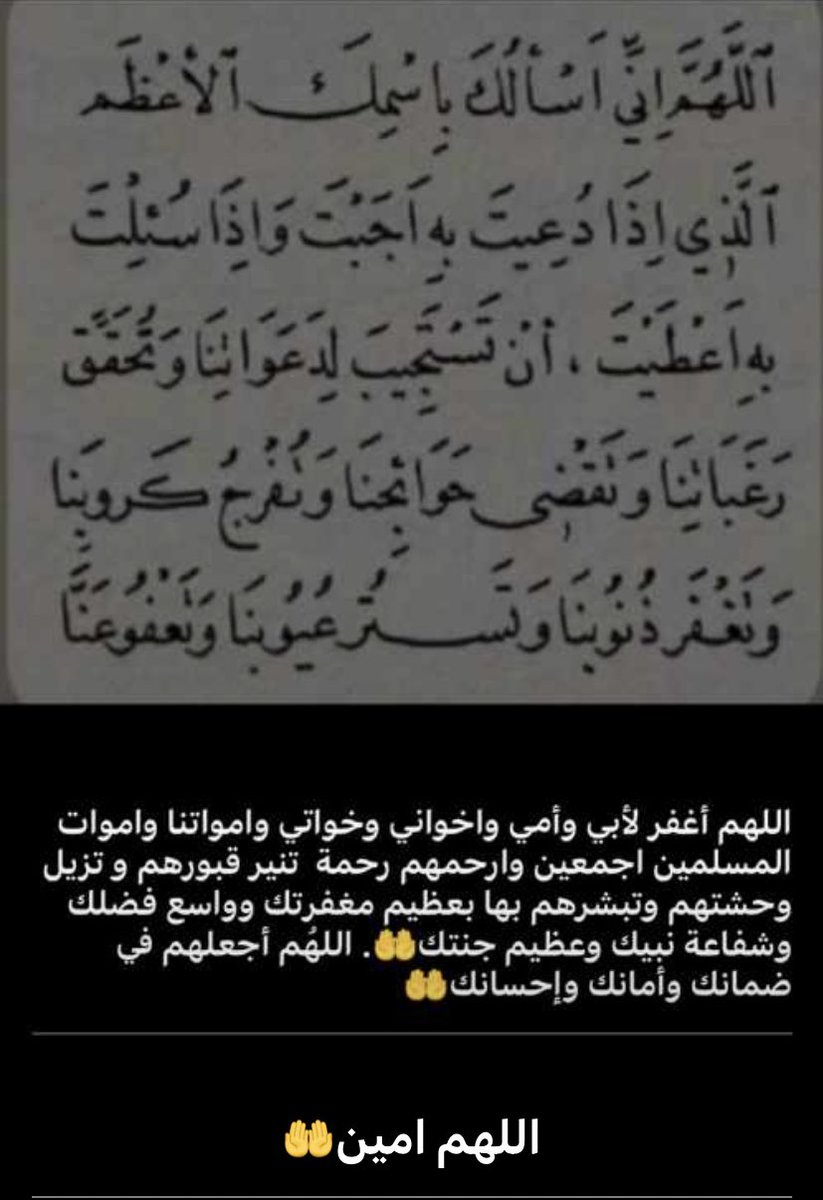 ٱللَّهُمَّ اِنِّي اَسْأَلُكَ بِاسْمِكَ ٱلْأَعْظَم
ٱلَّذِي اِذَا دُعِيتَ بِهِ اَجَبْتَ وَاِذَا سُئِلْتَ
بِهِ اَعْطَيْتَ ، أَنْ تَسْتَجِيبَ لِدَعَوَاتِنَا وَتُحَقِّقَ
رَغَبَاتِنَا وَتَقْضِى حَوَائِجَنَا وَتُفَرِّجُ كُرُوبِنَا
وَتَغْفِرَ ذُنُوبَنَا وَتَسْتُر عُيُوبَنَا وَتَعْفُوعَنَّا
اللهم أغفر لأبي وأمي واخواني وخواتي وامواتنا واموات
المسلمين اجمعين وارحمهم رحمة تنير قبورهم و تزيل
وحشتهم وتبشرهم بها بعظيم مغفرتك وواسع فضلك
وشفاعة نبيك وعظيم جنتك🤲. اللهُم أجعلهم في
ضمانك وأمانك وإحسانك🤲
اللهم امين🤲